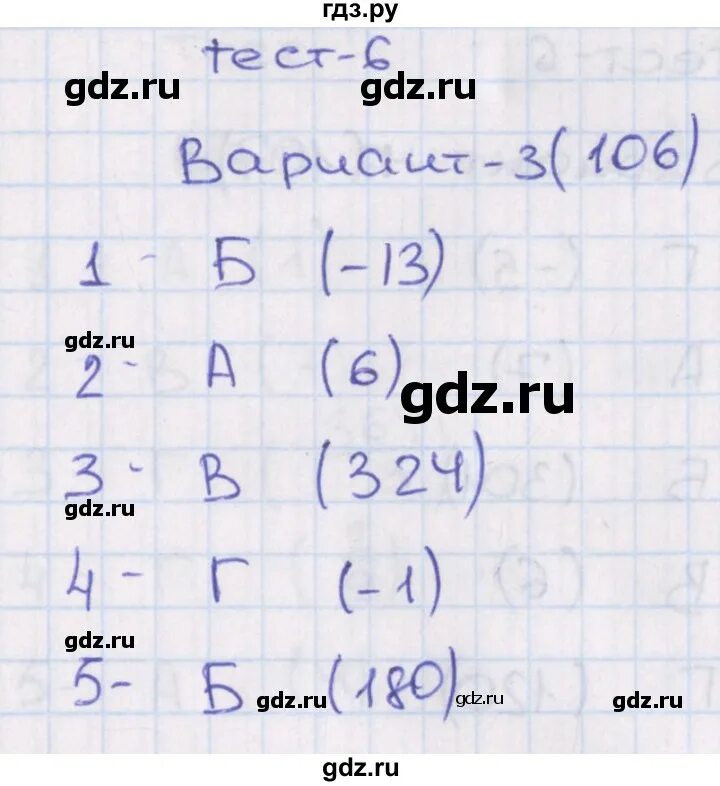 гдз.ру
тест-6
gdz.ru gdz.ru
Вариант-3(106)
1 - Б (-13)
gdz.ru
2 - А (6)
gdz.ru
3 - В (324)
gdz.ru
4 - Г (-1)
gdz.ru
5 - Б (180)
gdz.ru gdz.ru gdz.ru
gdz.ru